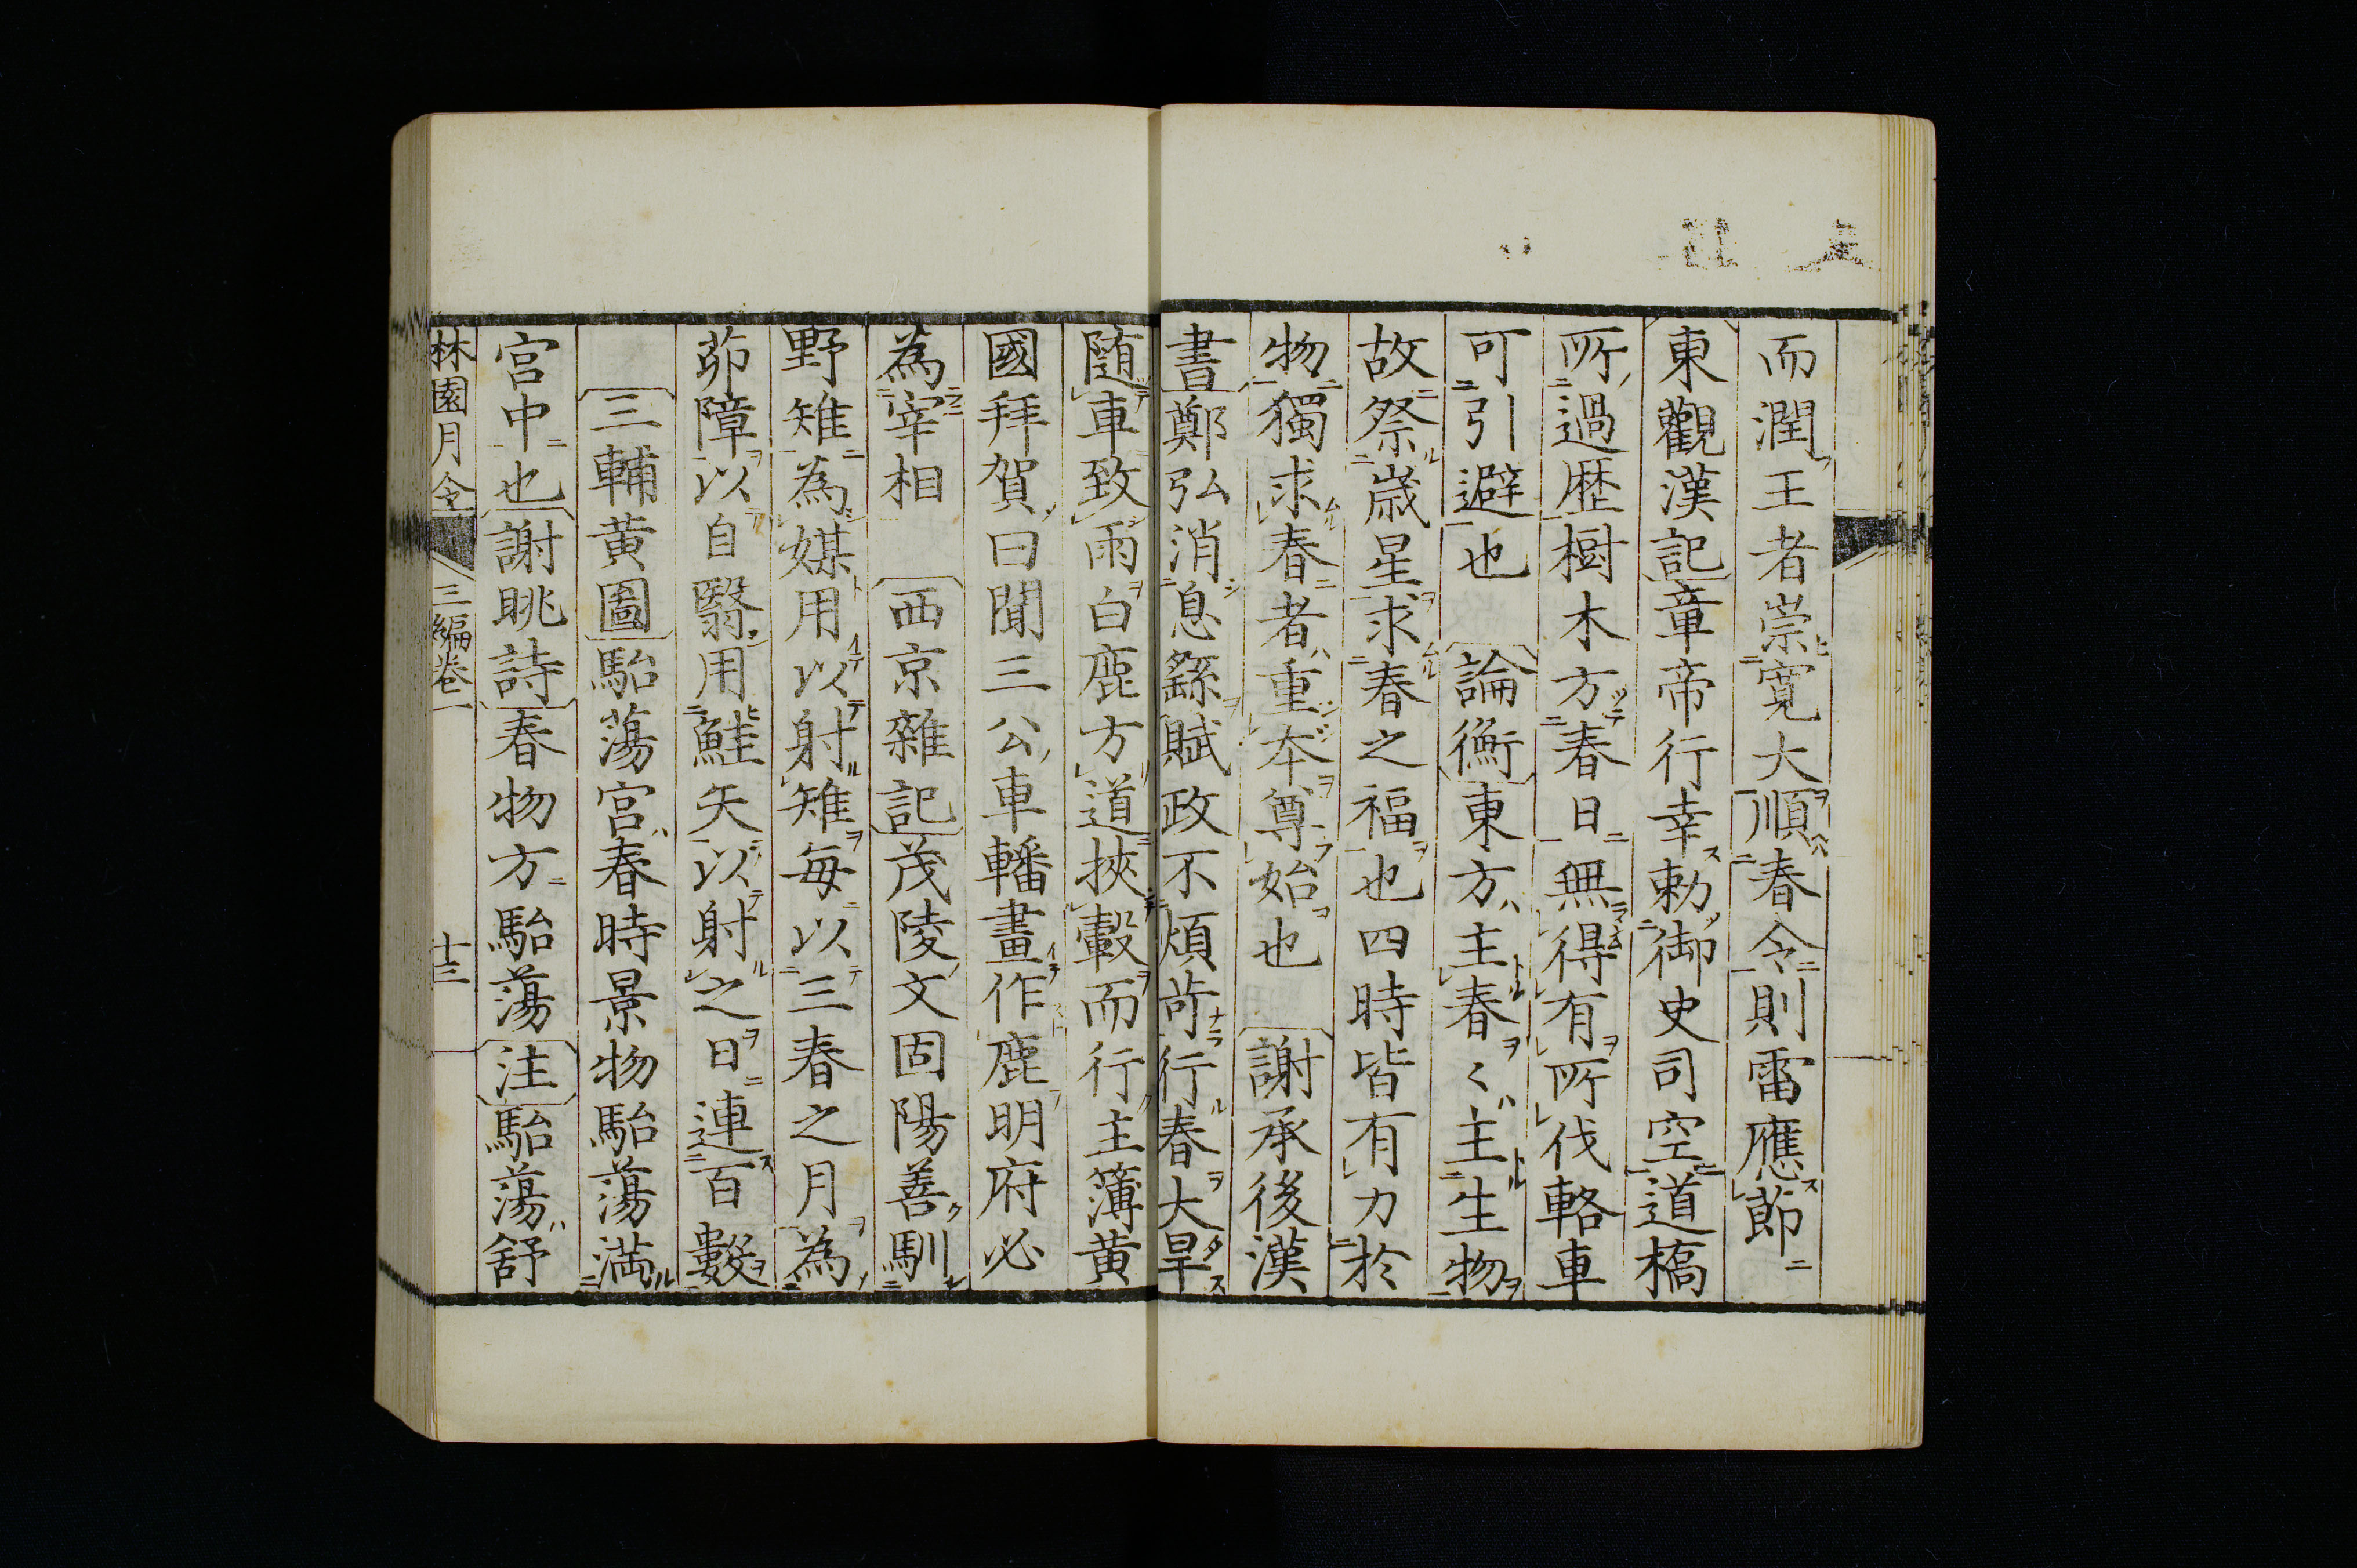 而潤王者崇寛大順春令則雷應莭
東觀漢記章帝行幸勅御史司空道橋
所過歴樹木方春日無得有所伐輅車
可引避也 論衡東方主春〻主生物
故祭歳星求春之福也四時皆有力於
物獨求春者重夲尊始也 謝承後漢
書鄭弘消息繇賦政不煩苛行春大旱
随車致雨白鹿方道挾轂而行主簿黄
國拜賀曰聞三公車轓畫作鹿明府必
為宰相 西京雜記茂陵文固陽善馴
野雉為媒用以射雉毎以三春之月為
茆障以自翳用鮭矢以射之日連百數
三輔黄圖駘蕩宮春時景物駘蕩満
宮中也謝眺詩春物方駘蕩注駘蕩舒
林園月令 三編巻一 十三